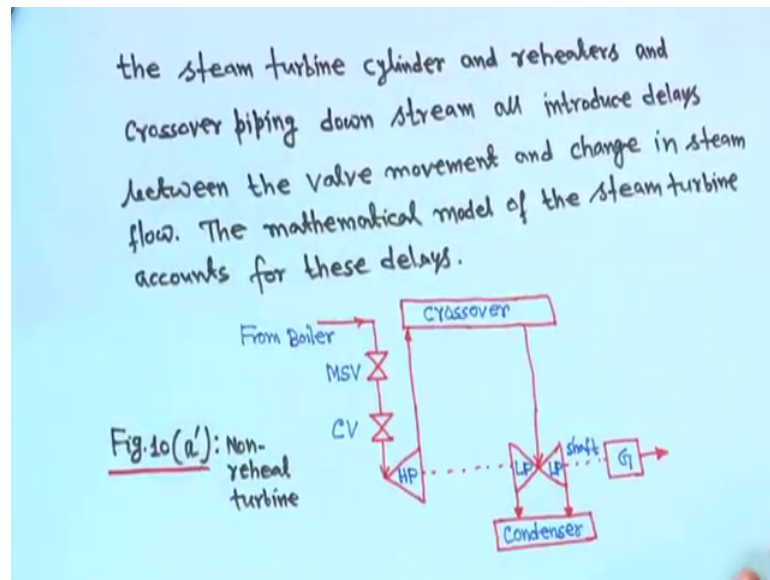 the steam turbine cylinder and reheaters and
crossover piping down stream all introduce delays
between the valve movement and change in steam
flow. The mathematical model of the steam turbine
accounts for these delays.
Crossover
From Boiler
MSV
CV
Fig.10(a'): Non-
reheat
turbine
HP
LP
LP
shaft
G
Condenser